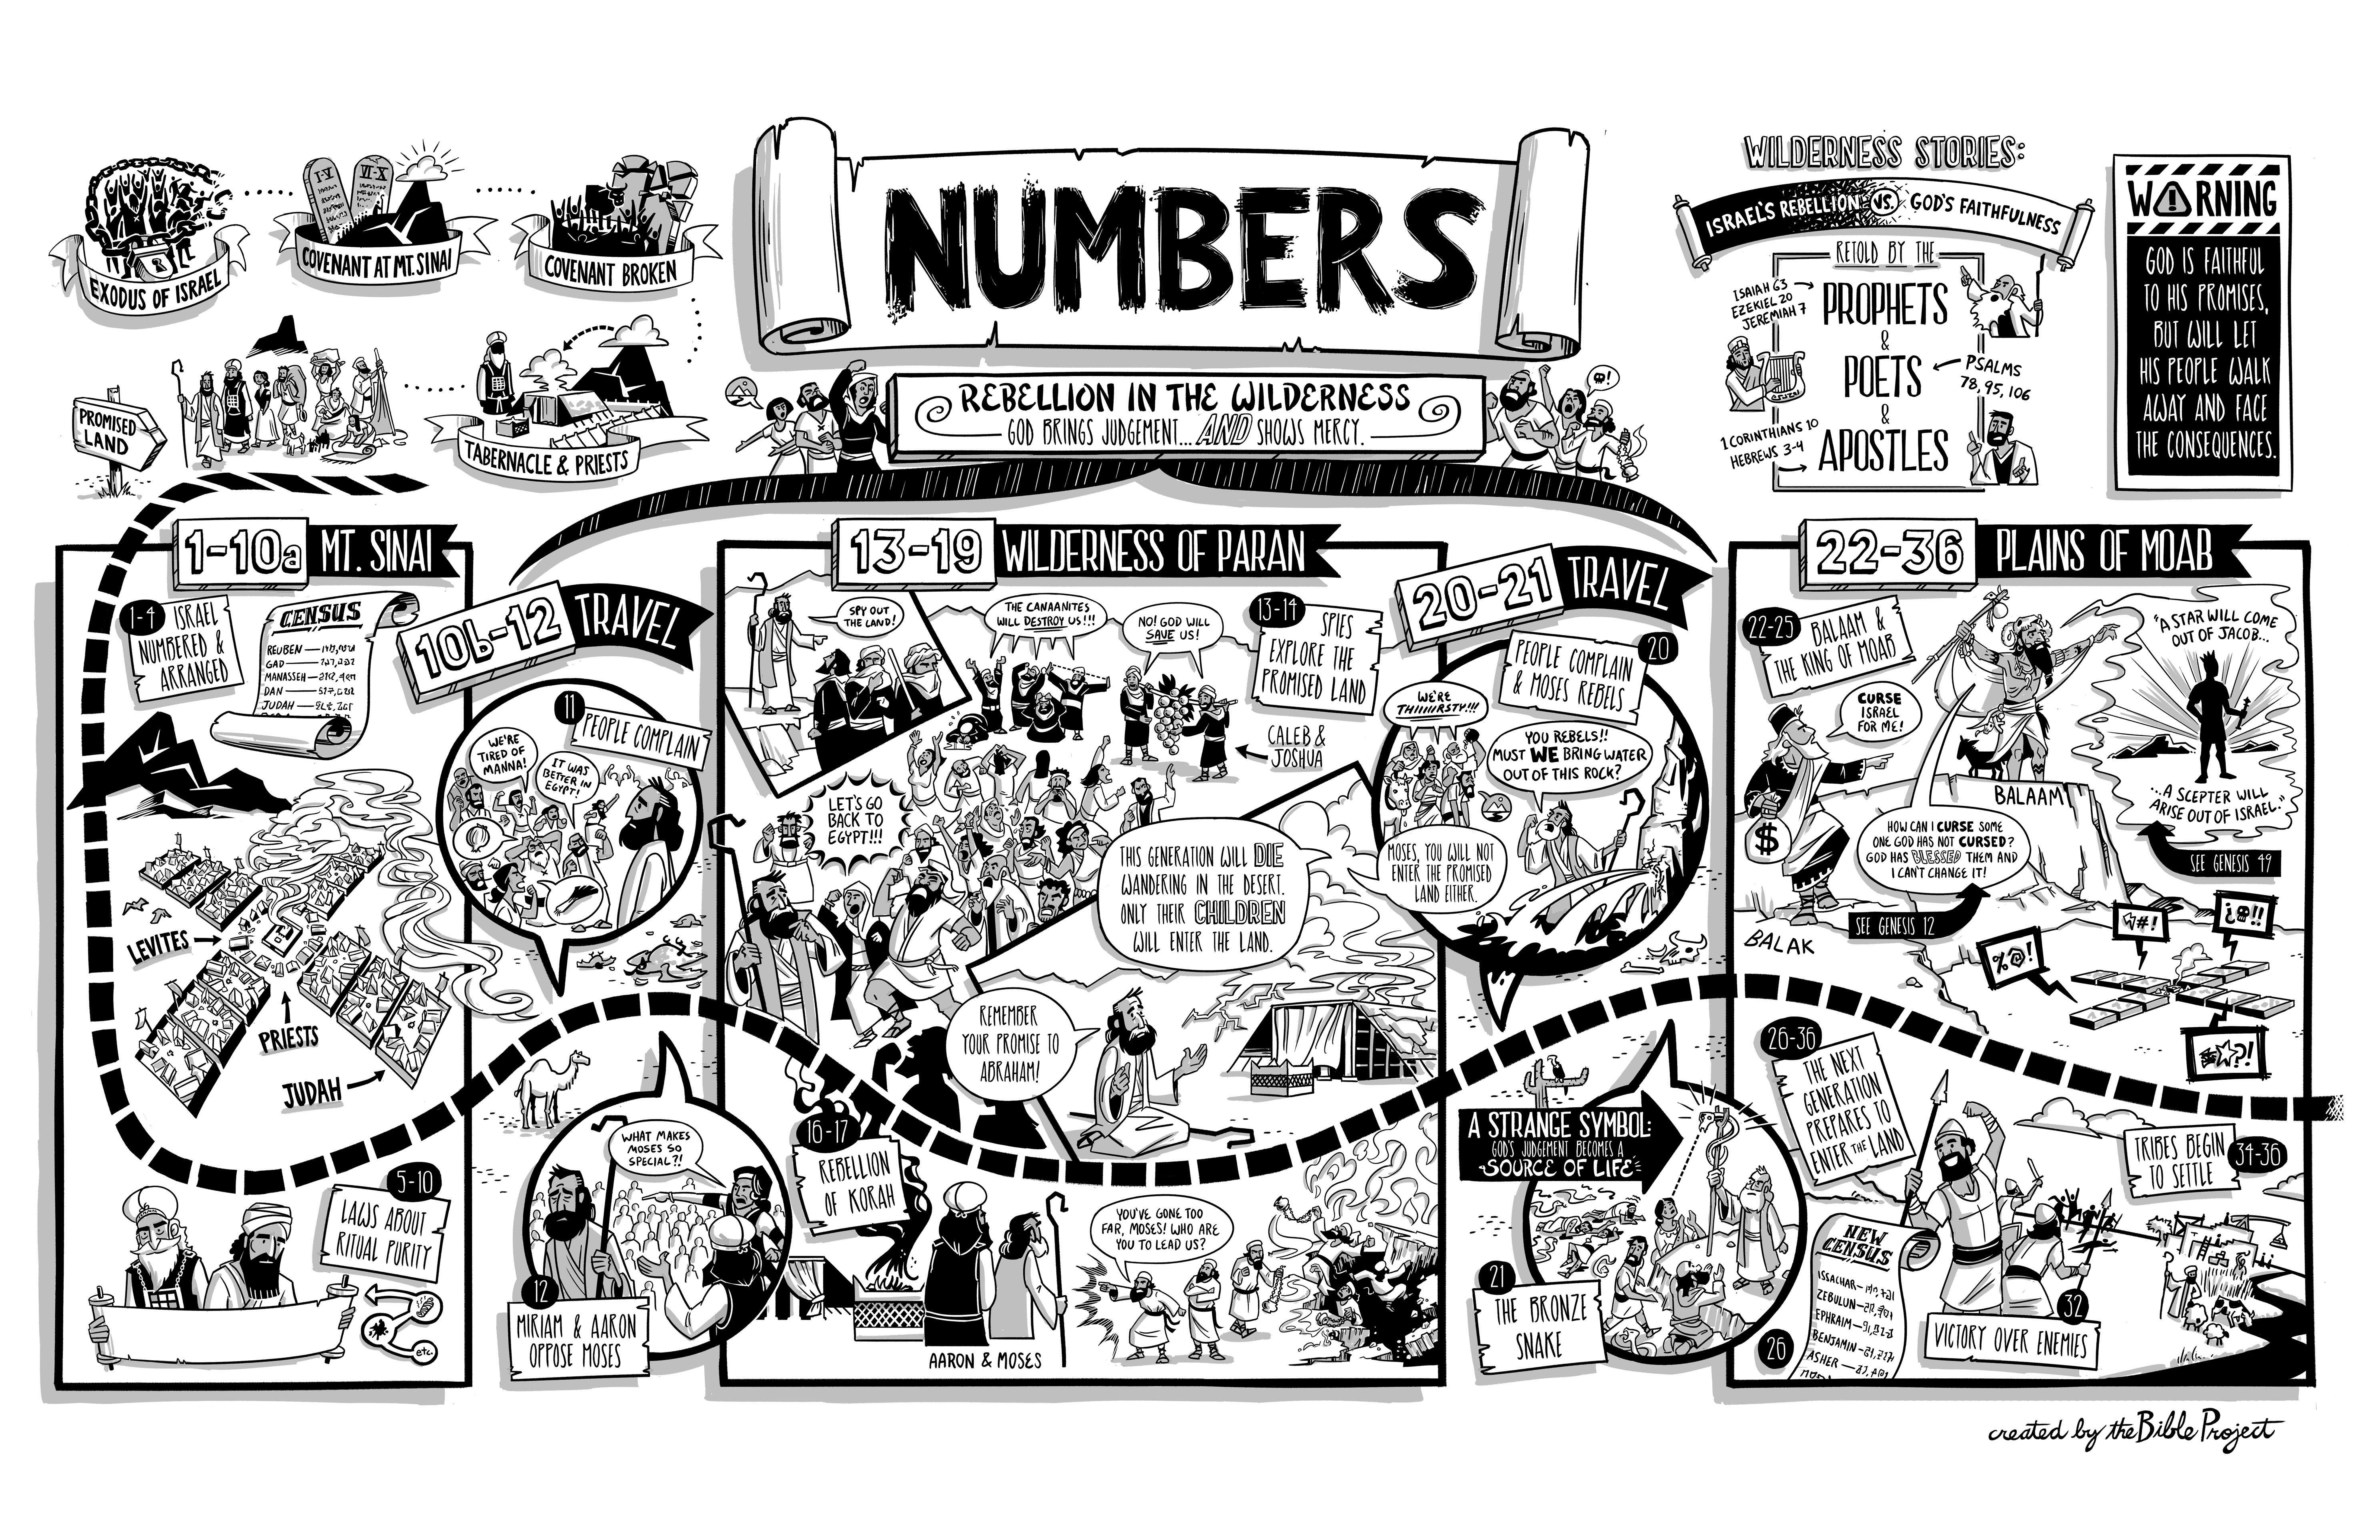 EXODUS OF ISRAEL
I-V
VI-X
COVENANT AT MT. SINAI
COVENANT BROKEN
PROMISED
LAND
TABERNACLE & PRIESTS
NUMBERS
REBELLION IN THE WILDERNESS
GOD BRINGS JUDGEMENT... AND SHOWS MERCY.
WILDERNESS STORIES:
ISRAEL'S REBELLION VS. GOD'S FAITHFULNESS
RETOLD BY THE
ISAIAH 63
EZEKIEL 20
JEREMIAH 7
PROPHETS
&
POETS
PSALMS
78, 95, 106
&
1 CORINTHIANS 10
HEBREWS 3-4
APOSTLES
WARNING
GOD IS FAITHFUL
TO HIS PROMISES,
BUT WILL LET
HIS PEOPLE WALK
AWAY AND FACE
THE CONSEQUENCES.
1-10a MT. SINAI
1-4 ISRAEL
NUMBERED &
ARRANGED
CENSUS
REUBEN
GAD
MANASSEH
DAN
JUDAH
LEVITES
PRIESTS
JUDAH
5-10
LAWS ABOUT
RITUAL PURITY
etc.
10b-12 TRAVEL
11 PEOPLE COMPLAIN
WE'RE
TIRED OF
MANNA!
IT WAS
BETTER IN
EGYPT!
WHAT MAKES
MOSES SO
SPECIAL?!
12
MIRIAM & AARON
OPPOSE MOSES
13-19 WILDERNESS OF PARAN
SPY OUT
THE LAND!
THE CANAANITES
WILL DESTROY US!!!
NO! GOD WILL
SAVE US!
13-14 SPIES
EXPLORE THE
PROMISED LAND
CALEB &
JOSHUA
LET'S GO
BACK TO
EGYPT!!!
THIS GENERATION WILL DIE
WANDERING IN THE DESERT.
ONLY THEIR CHILDREN
WILL ENTER THE LAND.
REMEMBER
YOUR PROMISE TO
ABRAHAM!
16-17
REBELLION
OF KORAH
AARON & MOSES
YOU'VE GONE TOO
FAR, MOSES! WHO ARE
YOU TO LEAD US?
20-21 TRAVEL
20
PEOPLE COMPLAIN
& MOSES REBELS
WE'RE
THIIIIRSTY!!!
YOU REBELS!!
MUST WE BRING WATER
OUT OF THIS ROCK?
MOSES, YOU WILL NOT
ENTER THE PROMISED
LAND EITHER.
A STRANGE SYMBOL:
GOD'S JUDGEMENT BECOMES A
SOURCE OF LIFE
21
THE BRONZE
SNAKE
22-36 PLAINS OF MOAB
22-25 BALAAM &
THE KING OF MOAB
CURSE
ISRAEL
FOR ME!
$
BALAK
BALAAM
HOW CAN I CURSE SOME
ONE GOD HAS NOT CURSED?
GOD HAS BLESSED THEM AND
I CAN'T CHANGE IT!
SEE GENESIS 12
"A STAR WILL COME
OUT OF JACOB...
...A SCEPTER WILL
ARISE OUT OF ISRAEL."
SEE GENESIS 49
%@!
26-36
THE NEXT
GENERATION
PREPARES TO
ENTER THE LAND
NEW
CENSUS
ISSACHAR
ZEBULUN
EPHRAIM
BENJAMIN
ASHER
26
32
VICTORY OVER ENEMIES
TRIBES BEGIN
TO SETTLE
34-36
created by the Bible Project